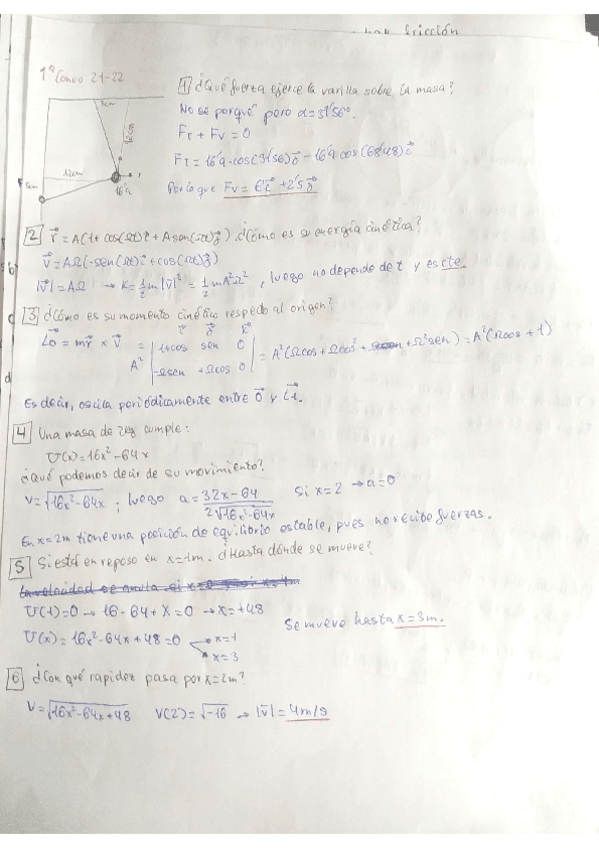 fricción
1ª Convo 21-22
1 ¿Qué fuerza ejerce la varilla sobre la masa?
5cm
No sé porqué pero α=31'56º.
Fr + Fv = 0
12cm
16'9
Fr = 16'9·cos(31'56)j - 16'9 cos(68'48)i
Por lo que Fv = 6'i + 2'5j
2 r = A(1+cos(Ωt)i + Asen(Ωt)j) ¿Cómo es su energía cinética?
V = AΩ(-sen(Ωt)i + cos(Ωt)j)
|V| = AΩ → K = 1/2 m|V|² = 1/2 mA²Ω², luego no depende de t y es cte.
3 ¿Cómo es su momento cinético respecto al origen?
Lo = mr × V = A² | i j k 1+cos sen 0 -Ωsen +Ωcos 0 | = A²(Ωcos + Ωcos² + Ω²sen) = A²(Ωcos + 1)
Es decir, oscila periódicamente entre 0 y
4 Una masa de 2kg cumple:
U(x) = 16x² - 64x
¿Qué podemos decir de su movimiento?
V = √16x²-64x ; luego a = 32x-64 / 2√16x²-64x Si x=2 → a=0
En x=2m tiene una posición de equilibrio estable, pues no recibe fuerzas.
5 Si está en reposo en x=1m. ¿Hasta dónde se mueve?
La velocidad se anula si
U(1)=0 → 16-64+X=0 → x=+48
Se mueve hasta x=3m.
U(x) = 16x²-64x+48=0 → x=1
x=3
6 ¿Con qué rapidez pasa por x=2m?
V = √16x²-64x+48 V(2) = √-16 → |v| = 4m/s